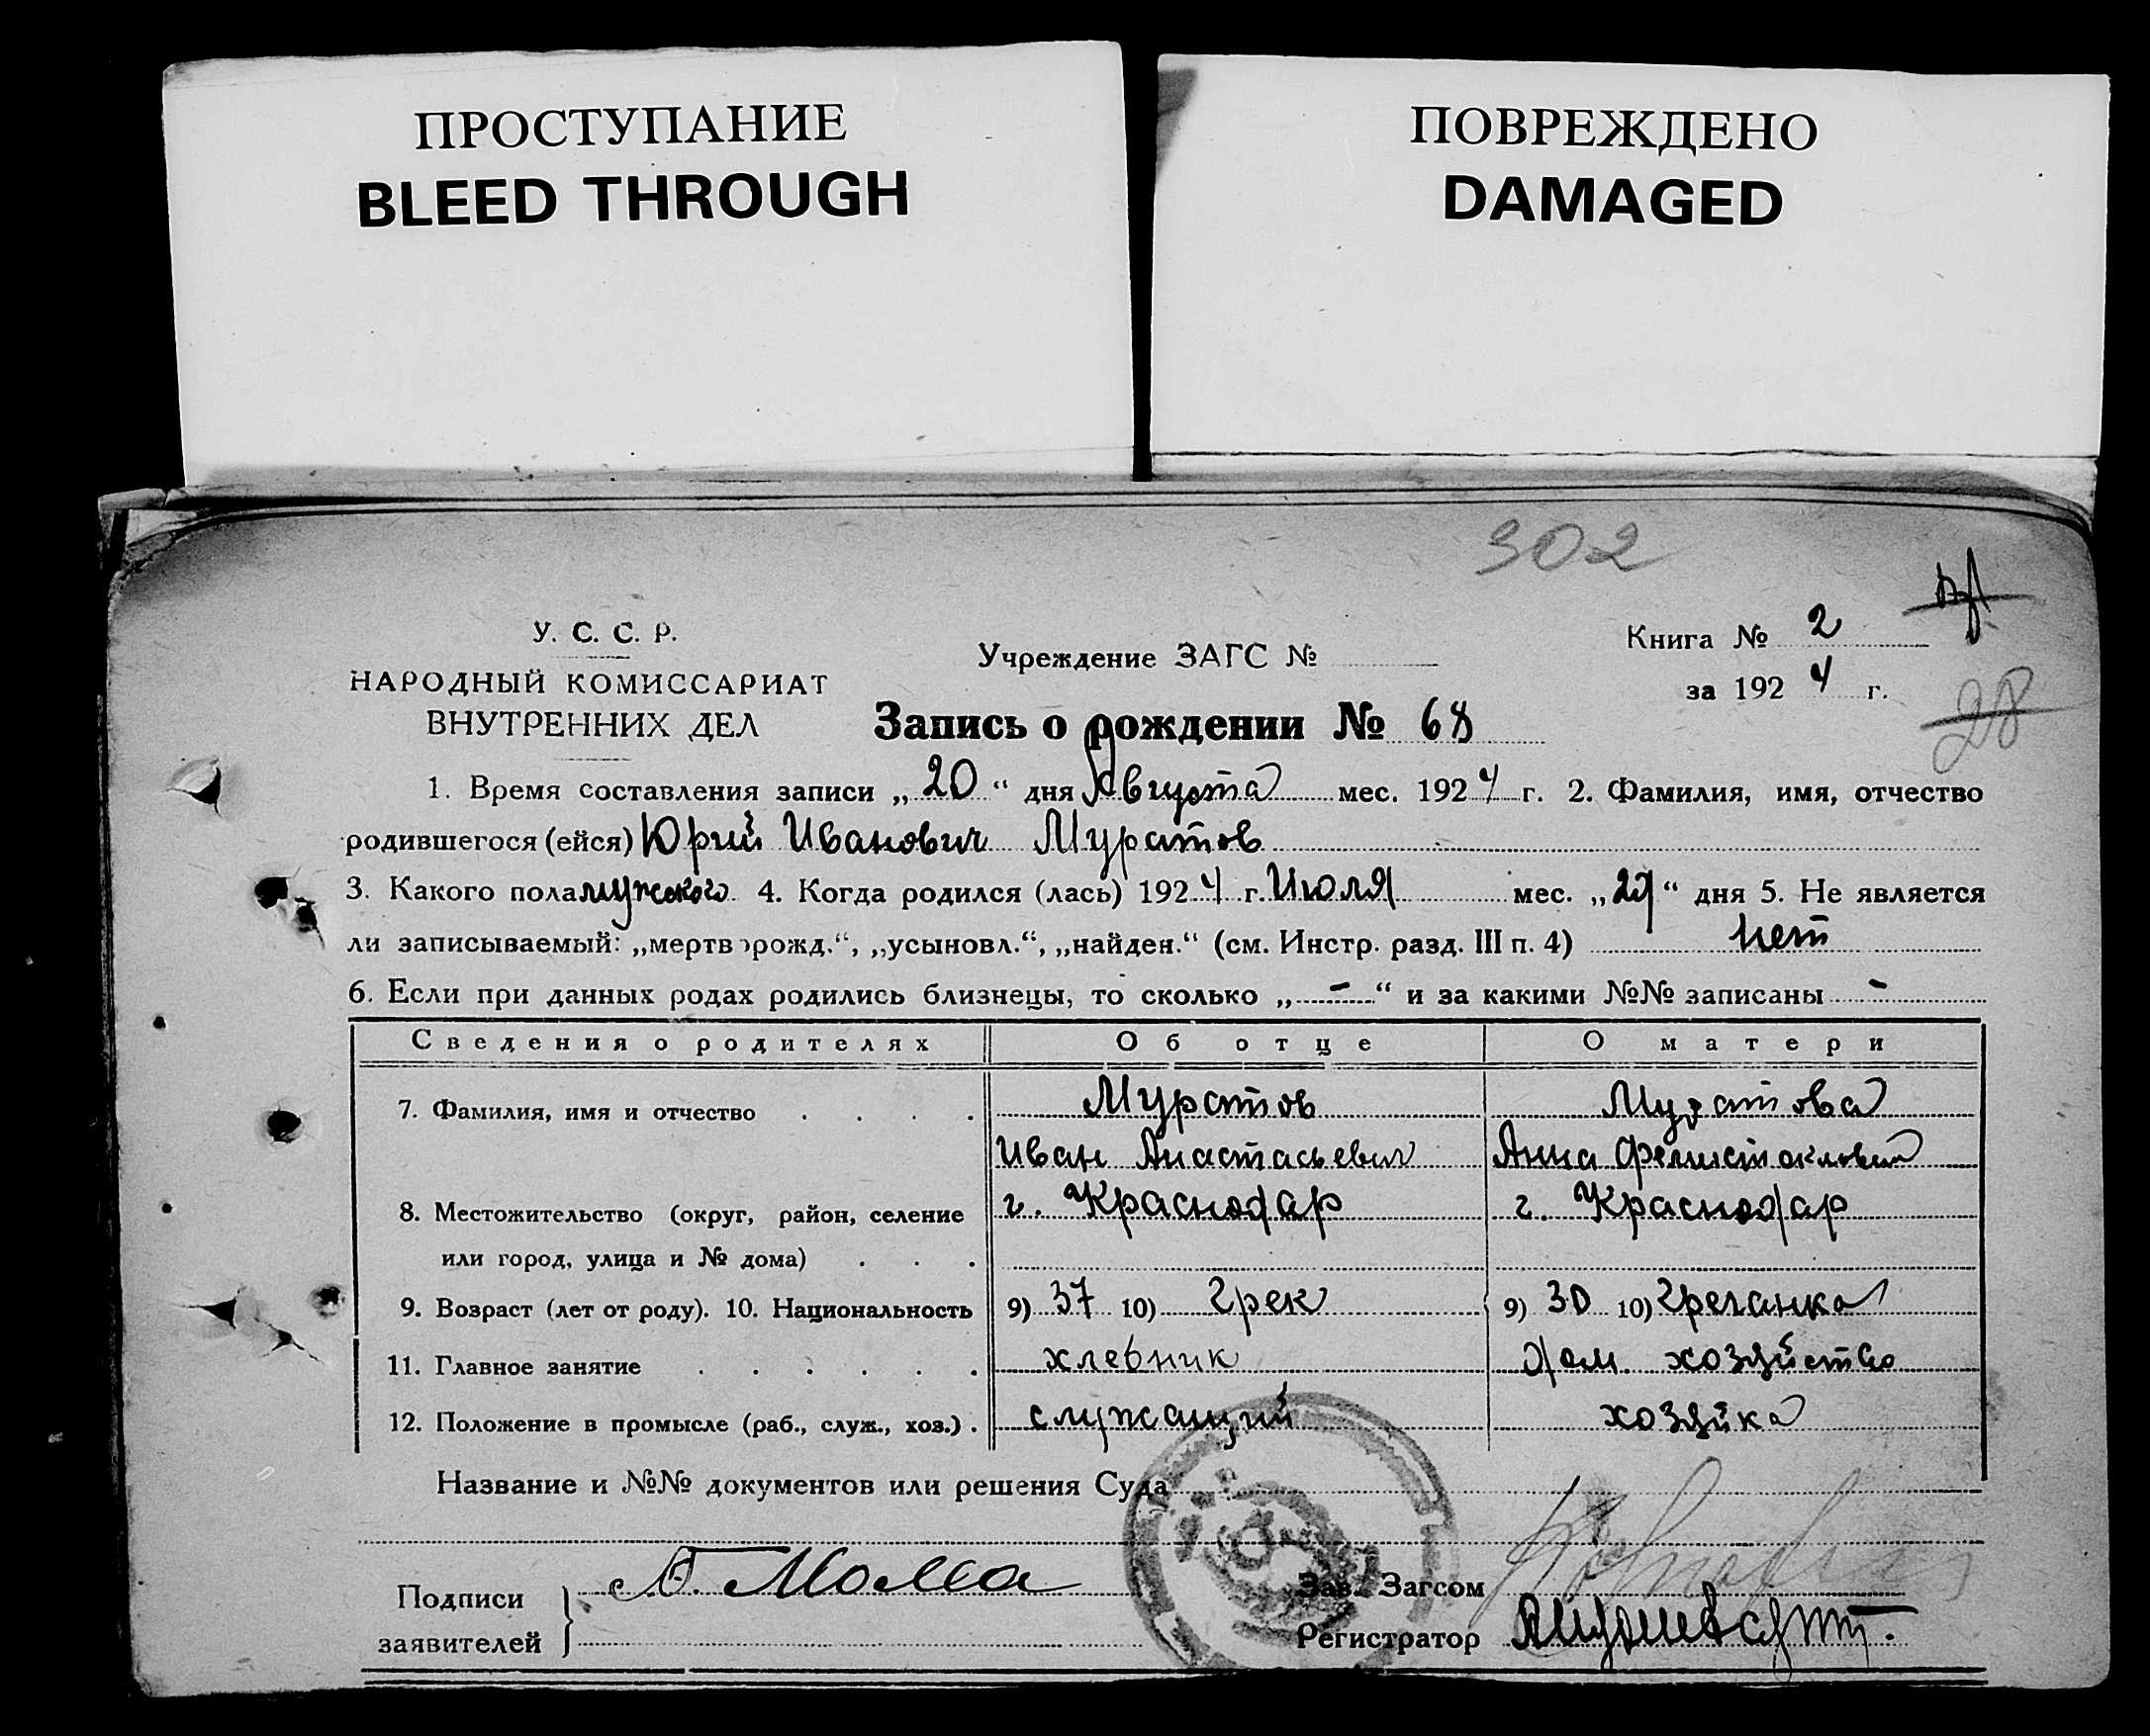 ПРОСТУПАНИЕ
BLEED THROUGH
ПОВРЕЖДЕНО
DAMAGED
302
У. С. С. Р.
НАРОДНЫЙ КОМИССАРИАТ
ВНУТРЕННИХ ДЕЛ
Учреждение ЗАГС №
Книга № 2
за 1924 г.
28
Запись о рождении № 68
1. Время составления записи „20“ дня Августа мес. 1924 г. 2. Фамилия, имя, отчество
родившегося (ейся) Юрий Иванович Муратов
3. Какого пола мужского 4. Когда родился (лась) 1924 г. Июля мес. „29“ дня 5. Не является
ли записываемый: „мертворожд.“, „усыновл.“, „найден.“ (см. Инстр. разд. III п. 4) нет
6. Если при данных родах родились близнецы, то сколько „-“ и за какими №№ записаны -
Сведения о родителях Об отце О матери
7. Фамилия, имя и отчество . . . . Муратов Муратова
Иван Анастасьевич Анна
8. Местожительство (округ, район, селение г. Краснодар г. Краснодар
или город, улица и № дома) . . .
9. Возраст (лет от роду). 10. Национальность 9) 37 10) Грек 9) 30 10) Гречанка
11. Главное занятие . . . . . . хлебник дом. хозяйство
12. Положение в промысле (раб., служ., хоз.) . служащий хозяйка
Название и №№ документов или решения Суда
Подписи
заявителей
Зав. Загсом
Регистратор